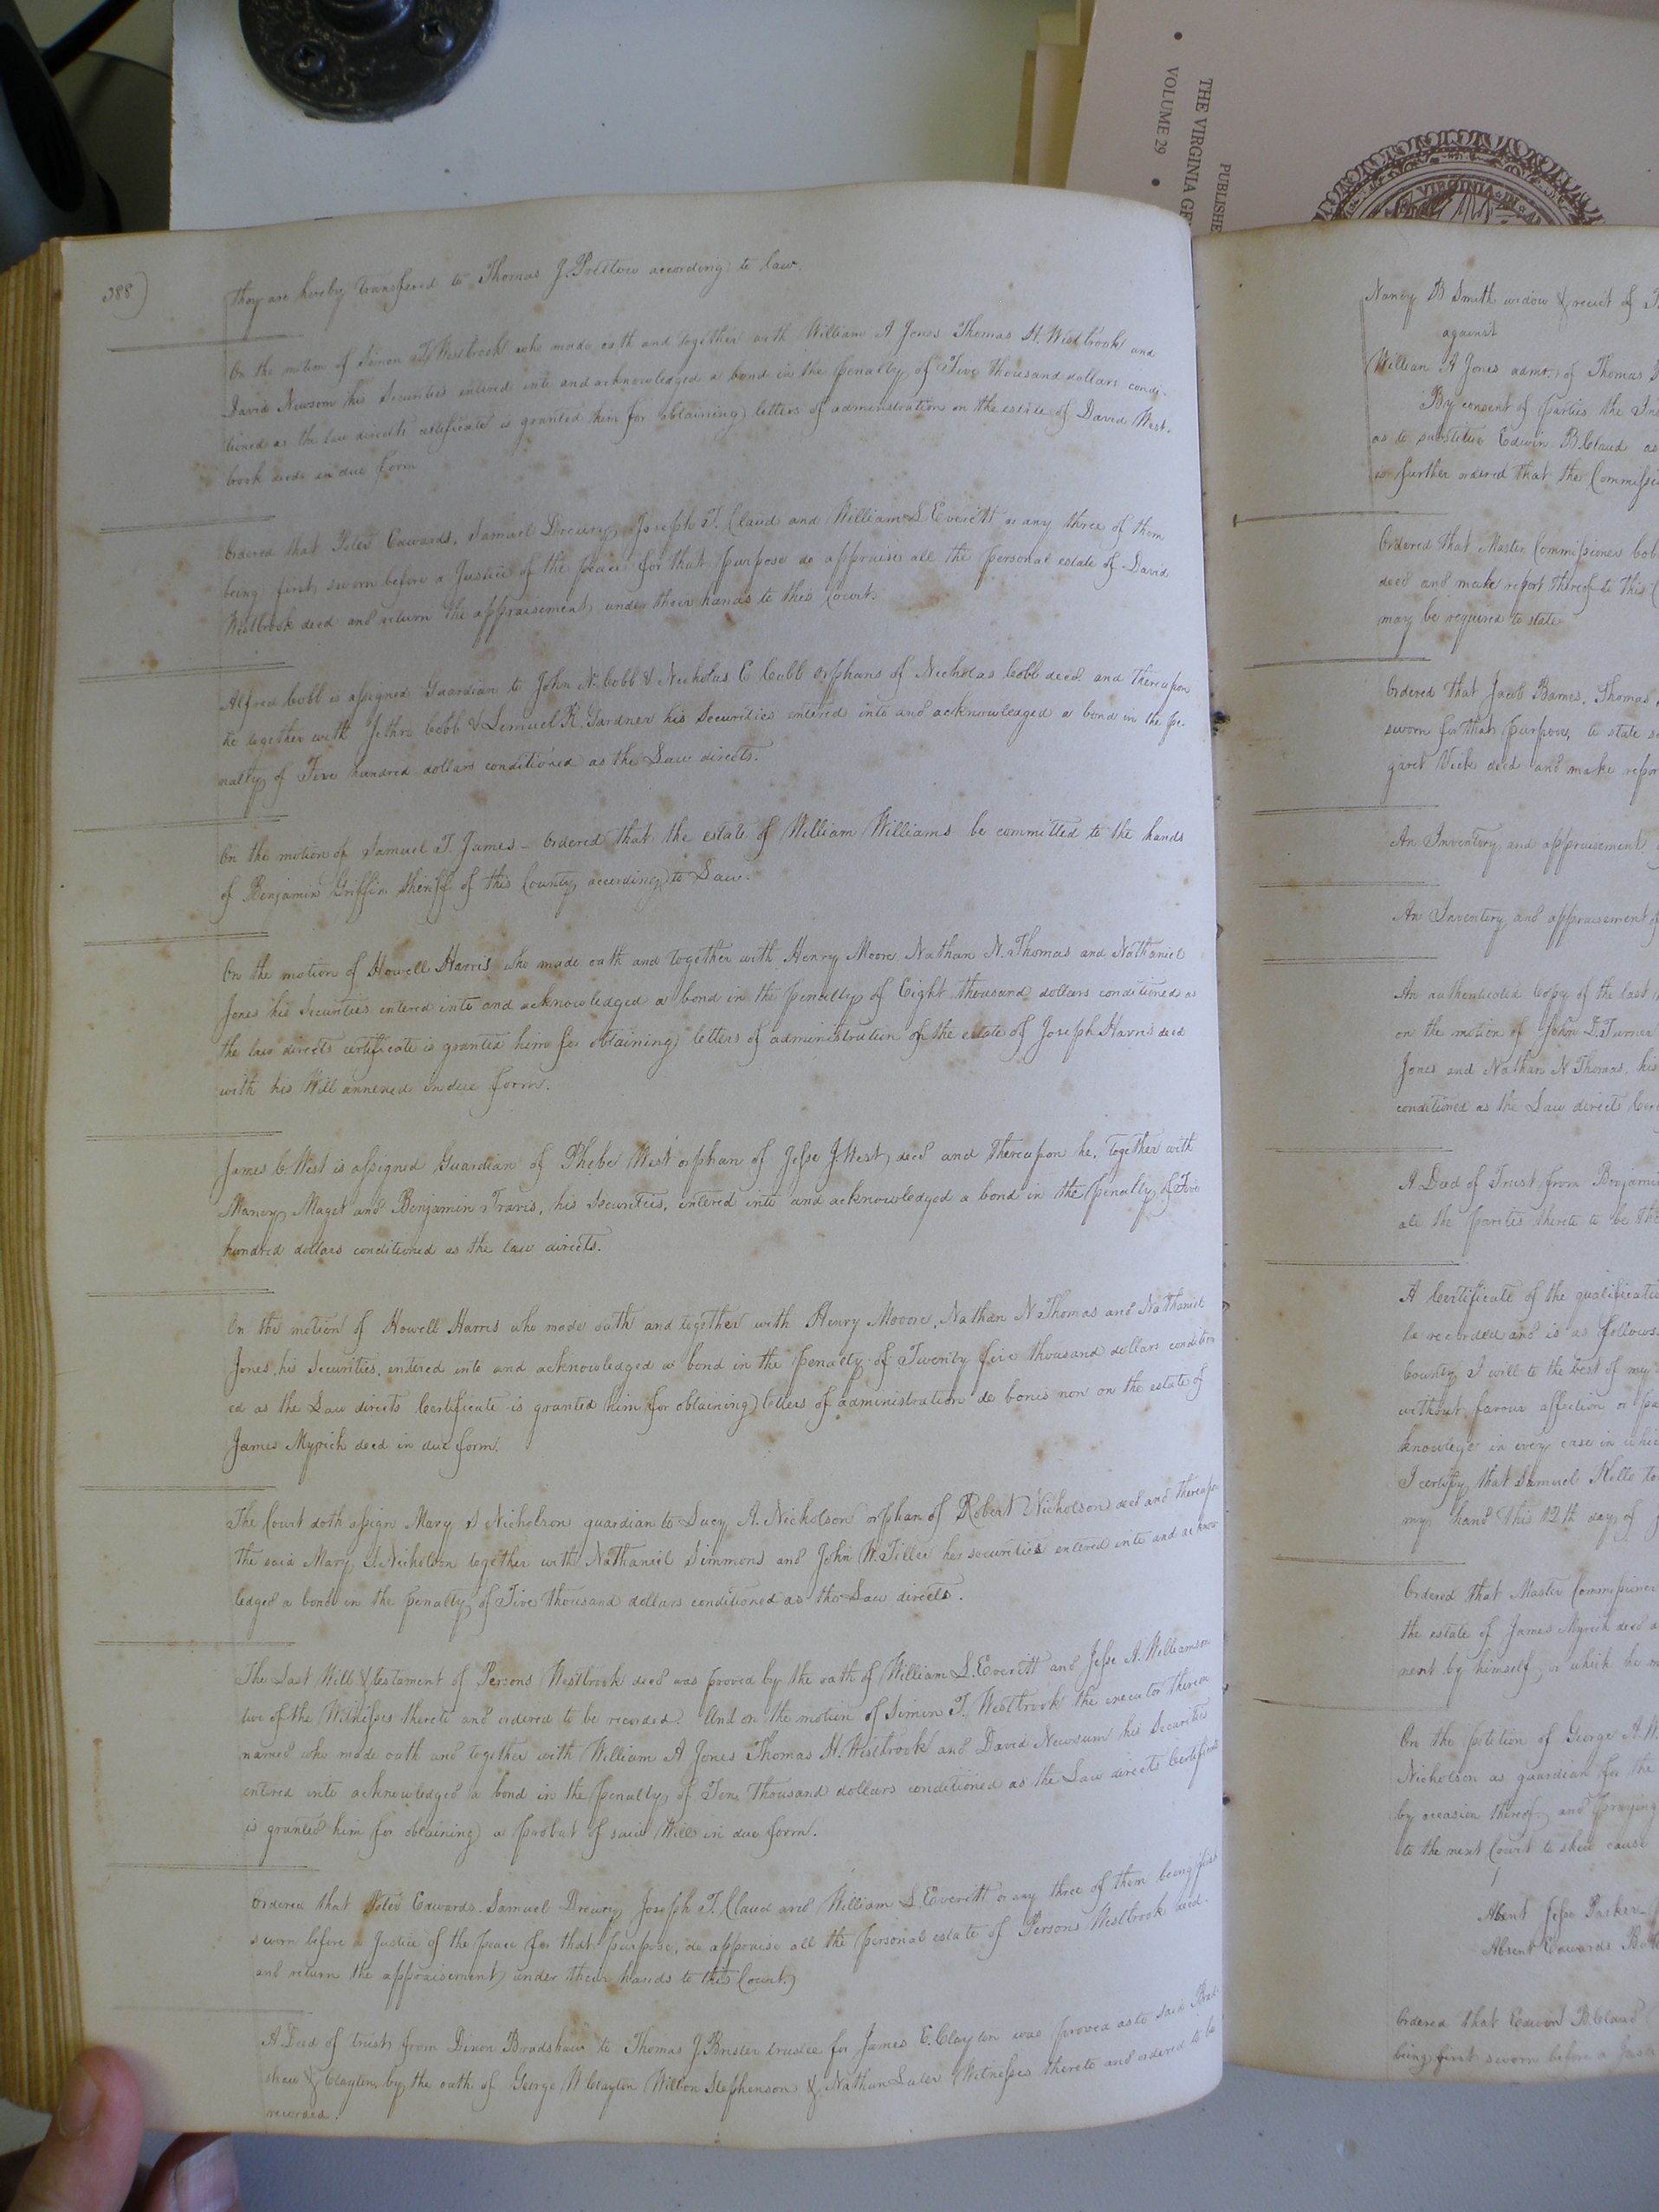 THE VIRGINIA GE
VOLUME 29
PUBLISHE
VIRGINIA
388)
they are hereby transfered to Thomas J. Pretlow according to law.
On the motion of Simon T. Westbrook who made oath and together with William A Jones Thomas H. Westbrook and
David Newsom his Securities entered into and acknowledged a bond in the penalty of Five thousand dollars condi-
tioned as the law directs certificate is granted him for obtaining letters of administration on the estate of David West-
brook decd. in due form
Ordered that Peter Edwards, Samuel Drewry, Joseph T. Claud and William S Everett or any three of them
being first sworn before a Justice of the peace for that purpose do appraise all the personal estate of David
Westbrook decd and return the appraisement under their hands to this Court.
Alfred Cobb is assigned Guardian to John N. Cobb & Nicholas E Cobb orphans of Nicholas Cobb decd. and thereupon
he together with Jethro Cobb & Lemuel R. Gardner his Securities entered into and acknowledged a bond in the pe-
nalty of Five hundred dollars conditioned as the Law directs.
On the motion of Samuel T. James - Ordered that the estate of William Williams be committed to the hands
of Benjamin Griffin Sheriff of this County according to Law.
On the motion of Howell Harris who made oath and together with Henry Moore, Nathan N. Thomas and Nathaniel
Jones his Securities entered into and acknowledged a bond in the penalty of Eight thousand dollars conditioned as
the law directs certificate is granted him for obtaining letters of administration on the estate of Joseph Harris decd
with his Will annexed in due form.
James C West is assigned Guardian of Phebe West orphan of Jesse J. West decd and thereupon he, together with
Nancy Maget and Benjamin Travis, his Securities, entered into and acknowledged a bond in the penalty of Five
hundred dollars conditioned as the law directs.
On the motion of Howell Harris who made oath and together with Henry Moore, Nathan N Thomas and Nathaniel
Jones, his Securities, entered into and acknowledged a bond in the penalty of Twenty five thousand dollars condition
ed as the Law directs Certificate is granted him for obtaining letters of administration de bonis non on the estate of
James Myrick decd in due form.
The Court doth assign Mary S Nicholson guardian to Lucy A. Nicholson orphan of Robert Nicholson decd and thereupon
the said Mary S Nicholson together with Nathaniel Simmons and John W. Tiller her securities entered into and acknow
ledged a bond in the penalty of Five thousand dollars conditioned as the Law directs.
The Last Will & testament of Persons Westbrook decd was proved by the oath of William S. Everett and Jesse A. Williamson
two of the Witnesses thereto and ordered to be recorded. And on the motion of Simon T. Westbrook the executor therein
named who made oath and together with William A Jones Thomas H. Westbrook and David Newsum his Securities
entered into acknowledged a bond in the penalty of Ten Thousand dollars conditioned as the Law directs Certificate
is granted him for obtaining a probat of said Will in due form.
Ordered that Peter Edwards, Samuel Drewry Joseph T. Claud and William S Everett or any three of them being first
sworn before a Justice of the peace for that purpose, do appraise all the personal estate of Persons Westbrook decd.
and return the appraisement under their hands to this Court.
A Deed of trust from Bradshaw to Thomas J. trustee for James E. Clayton was proved as to said Brad-
shaw & Clayton, by the oath of George W Clayton Stephenson & Nathan Witnesses thereto and ordered to be
recorded.
Nancy B Smith widow & relict of
against
William A Jones admr. of Thomas
By consent of parties the
as to substitute Edwin B. Claud as
is further ordered that the Commissi
Ordered that Master Commissioner Cob
decd and make report thereof to this C
may be required to state
Ordered that Jacob Barnes, Thomas
sworn for that purpose, to state
garet Vick decd and make repor
An Inventory and appraisement
An Inventory and appraisement
An authenticated Copy of the last
on the motion of John D. Turner
Jones and Nathan N Thomas, his
conditioned as the Law directs Cer
A Deed of Trust from Benjamin
all the parties thereto to be
A Certificate of the qualificatio
be recorded and is as follows
County I will to the best of my
without favour affection or pa
knowlege in every case in whic
I certify that Samuel Kello
my hand this 12th day of
Ordered that Master Commissioner
the estate of James Myrick decd a
ment by himself, or which he
On the petition of George A. W
Nicholson as guardian for the
by occasion thereof and praying
to the next Court to shew cause
Absent Jesse Parker
Absent Edwards
Ordered that Edwin B. Claud
being first sworn before a Justi